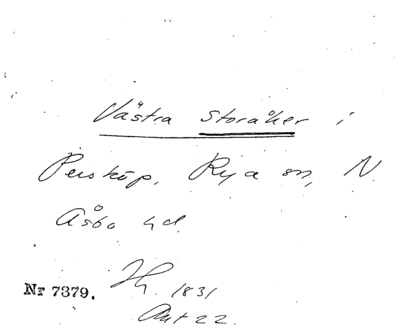 Västra Storåker i
Perstorp, Rya sn, N.
Åsbo hd.
Nr 7379. Hy. 1831
Akt 22.